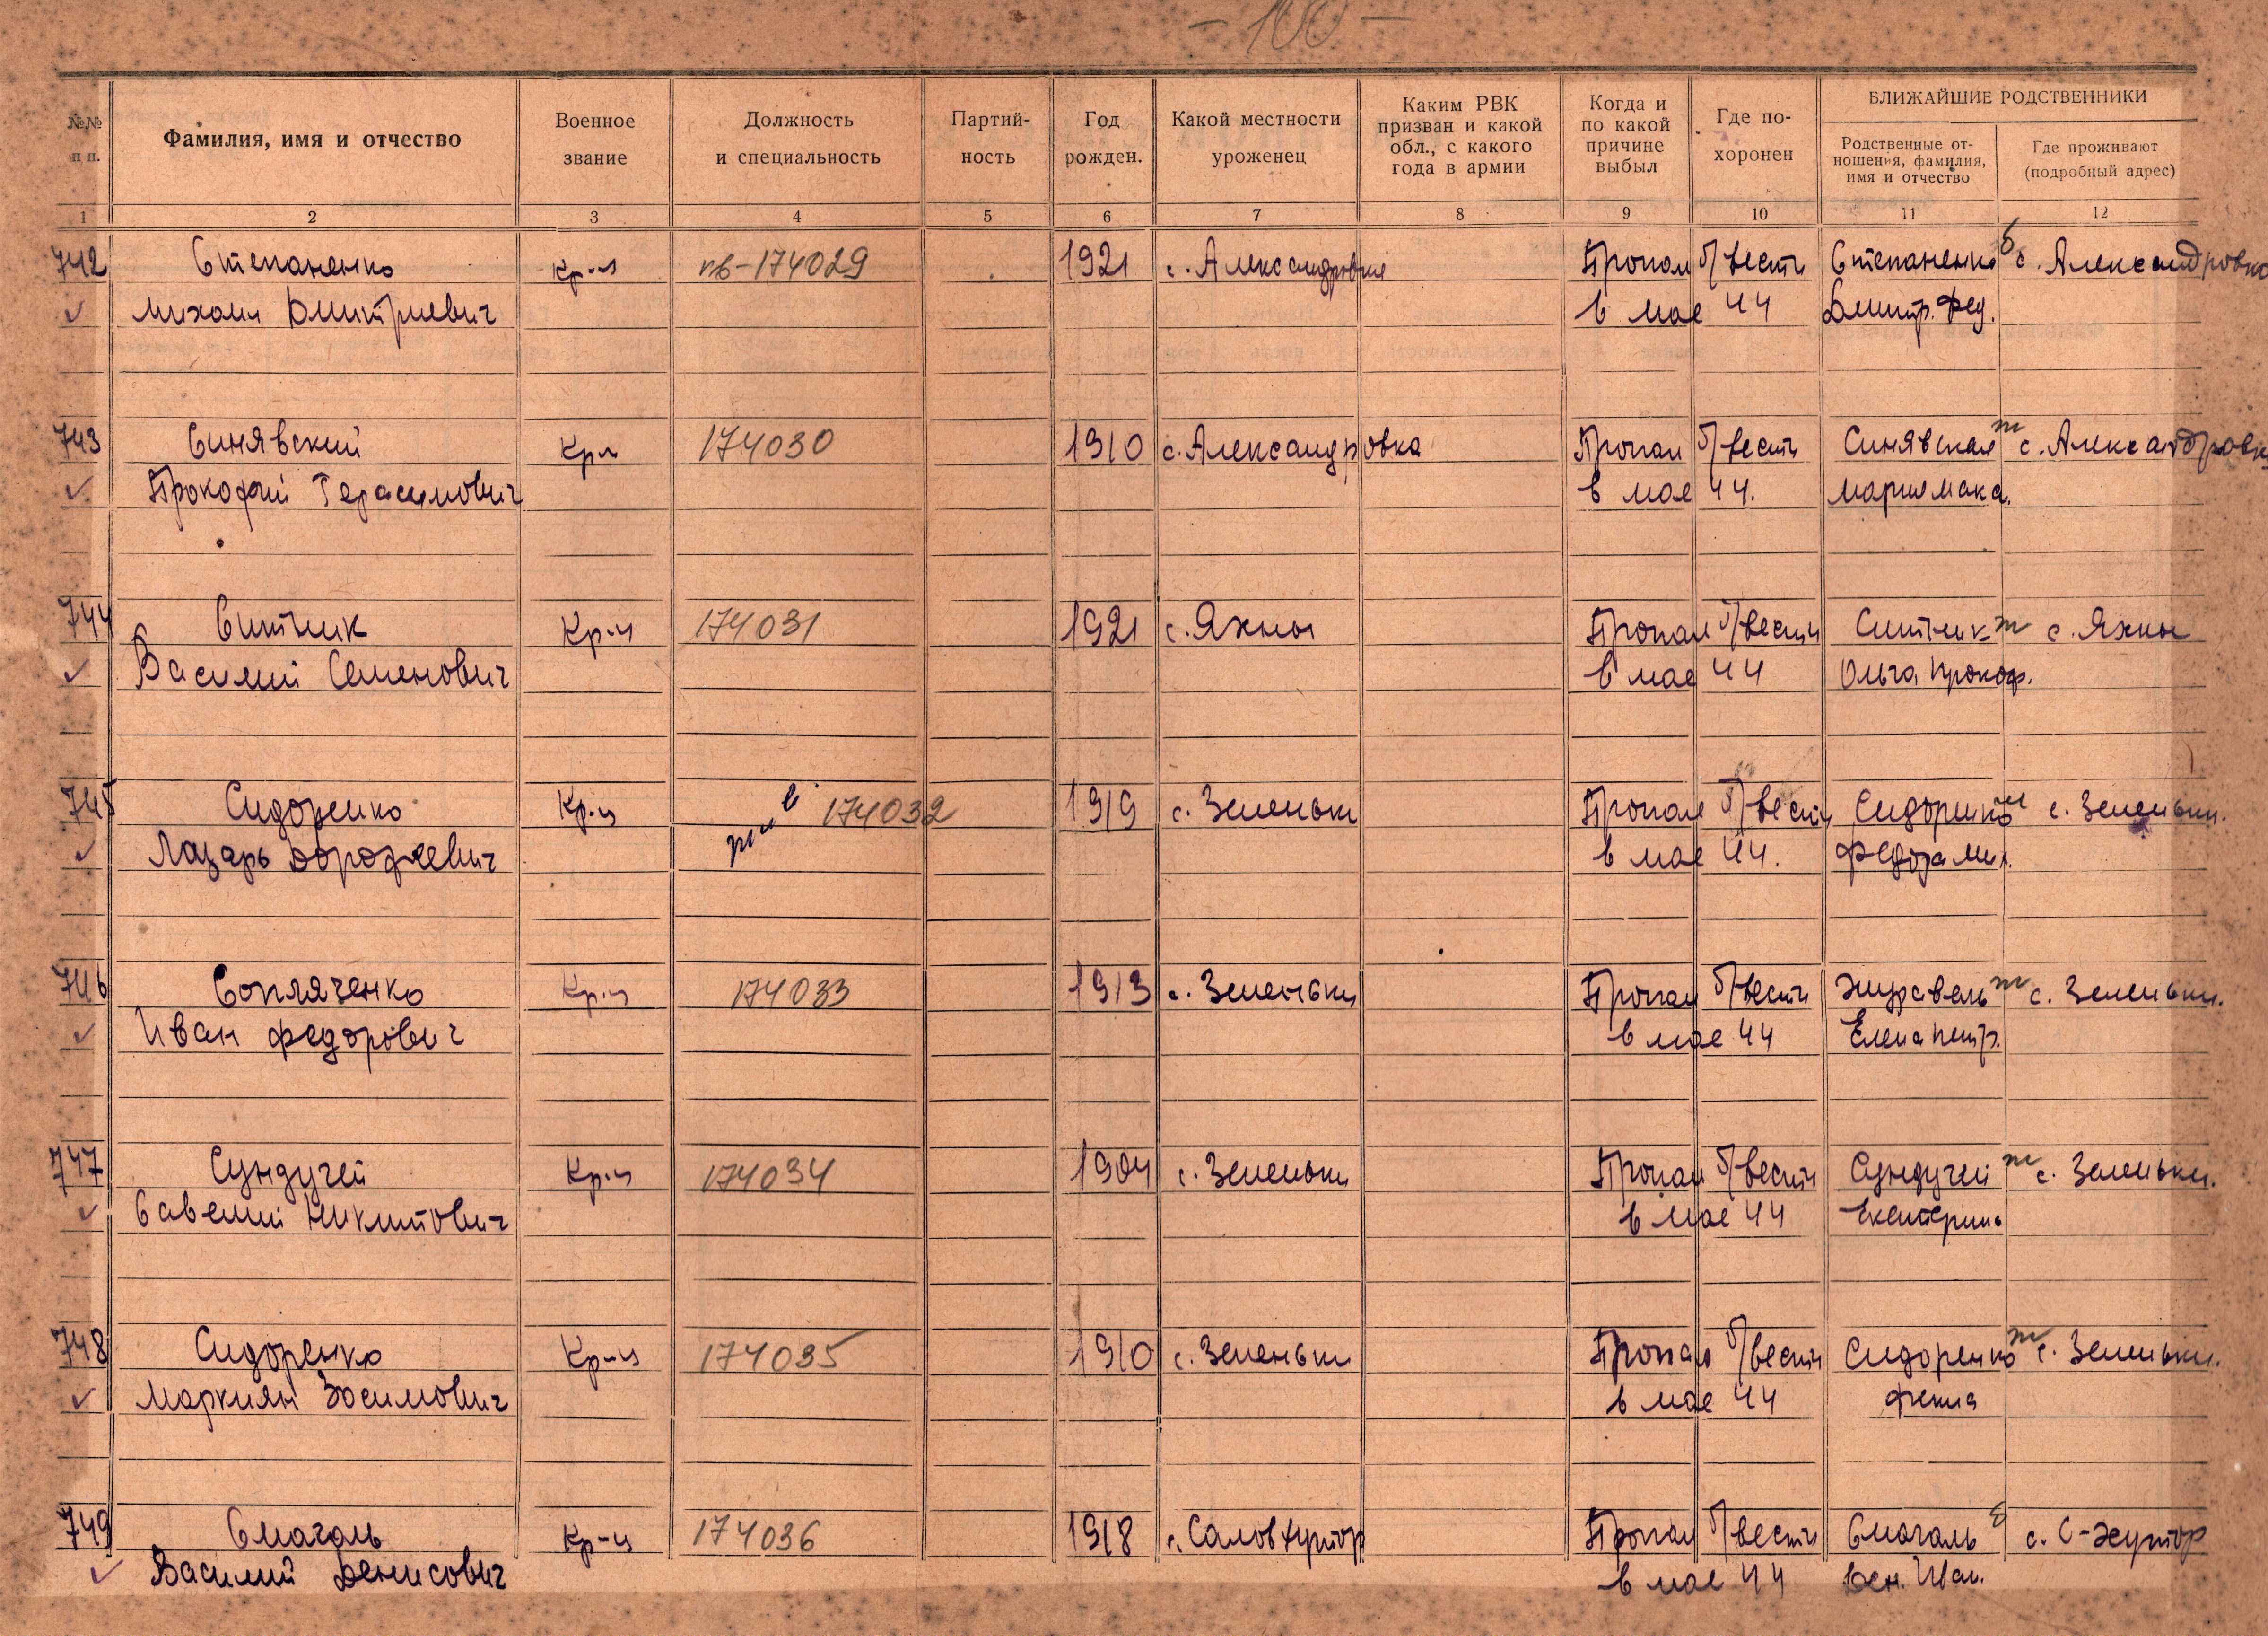 - 100 -
№№ п п.
Фамилия, имя и отчество
Военное звание
Должность и специальность
Партий-ность
Год рожден.
Какой местности уроженец
Каким РВК призван и какой обл., с какого года в армии
Когда и по какой причине выбыл
Где по-хоронен
БЛИЖАЙШИЕ РОДСТВЕННИКИ
Родственные от-ношения, фамилия, имя и отчество
Где проживают (подробный адрес)
1 2 3 4 5 6 7 8 9 10 11 12
742 Степаненко кр-ц пв-174029 1921 с. Александровка Пропал б/вести Степаненко б с. Александровка
Михаил Дмитриевич в мае 44 Дмитр. Фед.
743 Синявский Кр-ц 174030 1910 с. Александровка Пропал б/вести Синявская ж с. Александровка
Прокофий Герасимович в мае 44. Мария Мака.
744 Ситник Кр-ц 174031 1921 с. Яхны Пропал б/вести Ситник ж с. Яхны
Василий Семенович в мае 44 Ольга Прокоф.
745 Сидоренко Кр-ц жив 174032 1919 с. Зеленьки Пропал б/вести Сидоренко м с. Зеленьки.
Лазарь Дорофеевич в мае 44. Федора Мих.
746 Сопляченко Кр-ц 174033 1913 с. Зеленьки Пропал б/вести Журавель ж с. Зеленьки.
Иван Федорович в мае 44 Елена Петр.
747 Сундучей Кр-ц 174034 1904 с. Зеленьки Пропал б/вести Сундучей ж с. Зеленьки.
Савелий Никитович в мае 44 Екатерина
748 Сидоренко Кр-ц 174035 1910 с. Зеленьки Пропал б/вести Сидоренко ж с. Зеленьки.
Маркиян Зосимович в мае 44 Фекла
749 Смагаль Кр-ц 174036 1918 с. Салов хутор Пропал б/вести Смагаль б с. С-хутор
Василий Денисович в мае 44 Иван.